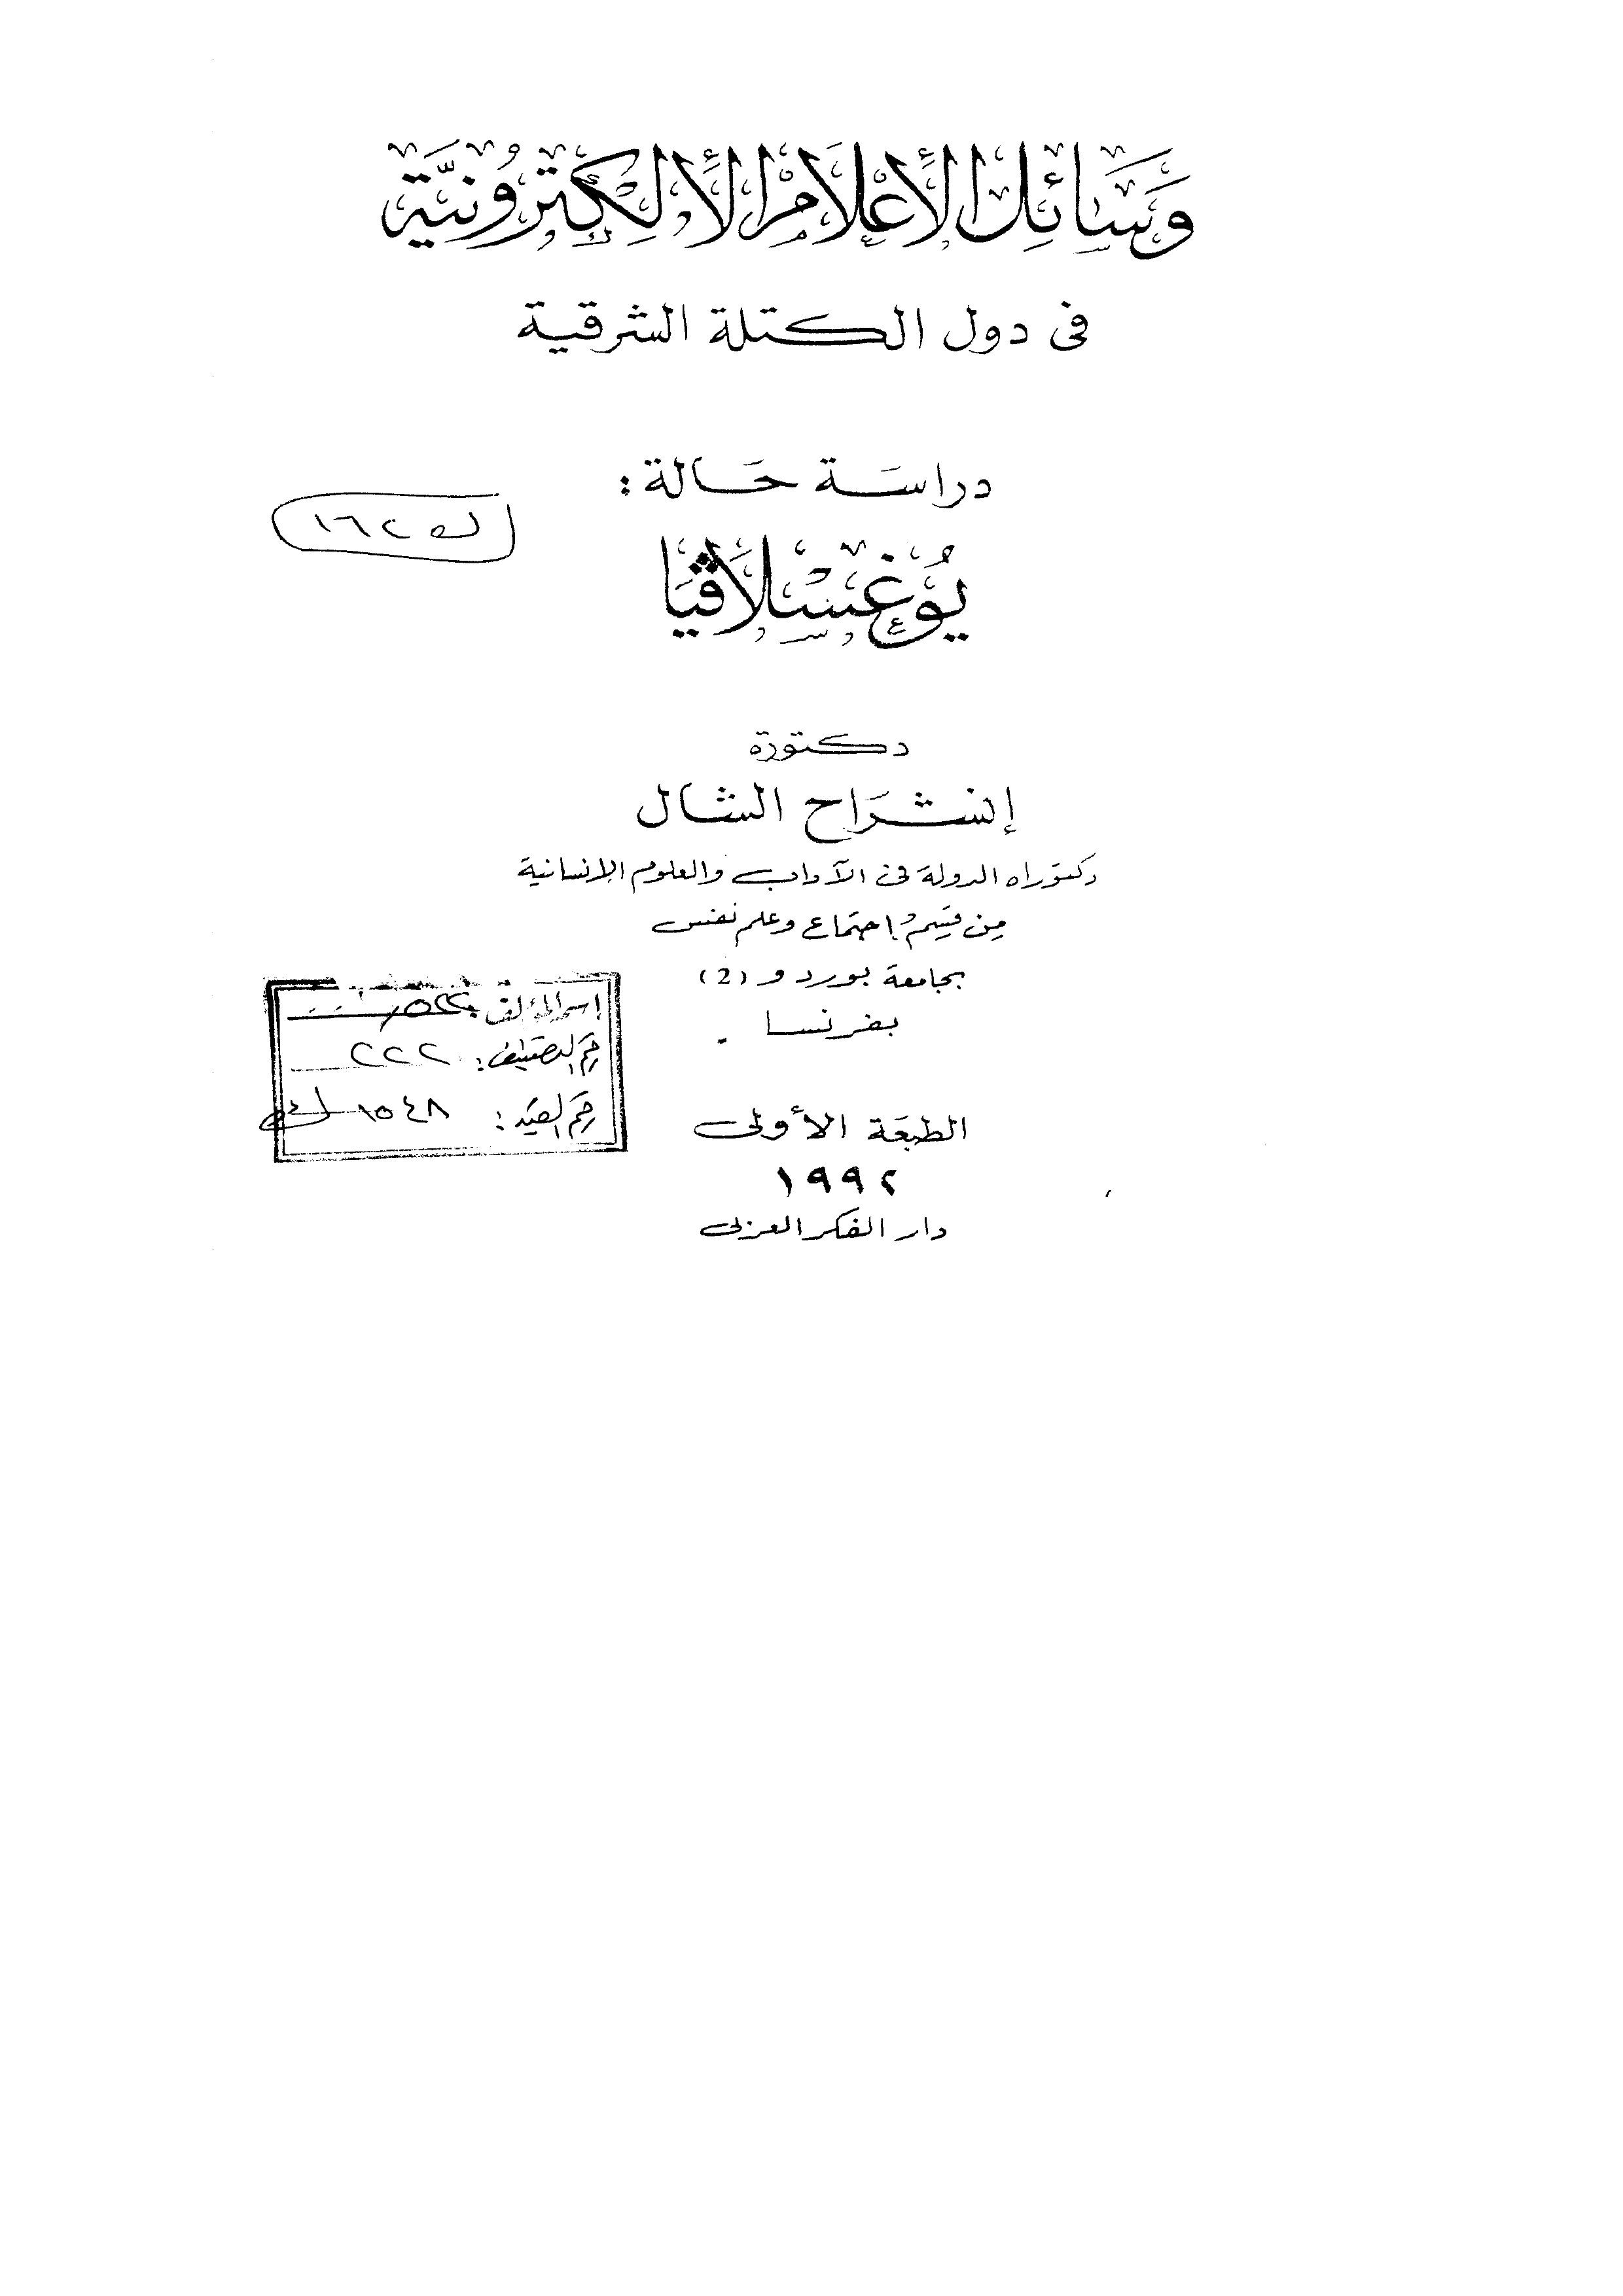 وَسَائِل الأعْلامْ الألِكِترُونيَّة
فى دول الكتلة الشرقية
دراسَة حَالة :
١٦٢
يُوغسْلاڤيَا
دكتورة
إنشرَاح الشال
دكتوراه الدولة فى الآداب والعلوم الإنسانية
من قسم إجتماع وعلم نفس
بجامعة بوردو (2)
بفرنسا .
اسم المؤلف
رقم التصنيف : ٢٢٢
رقم القيد : ١٥٤٨
الطبعَة الأولى
١٩٩٢
دار الفكر العربى